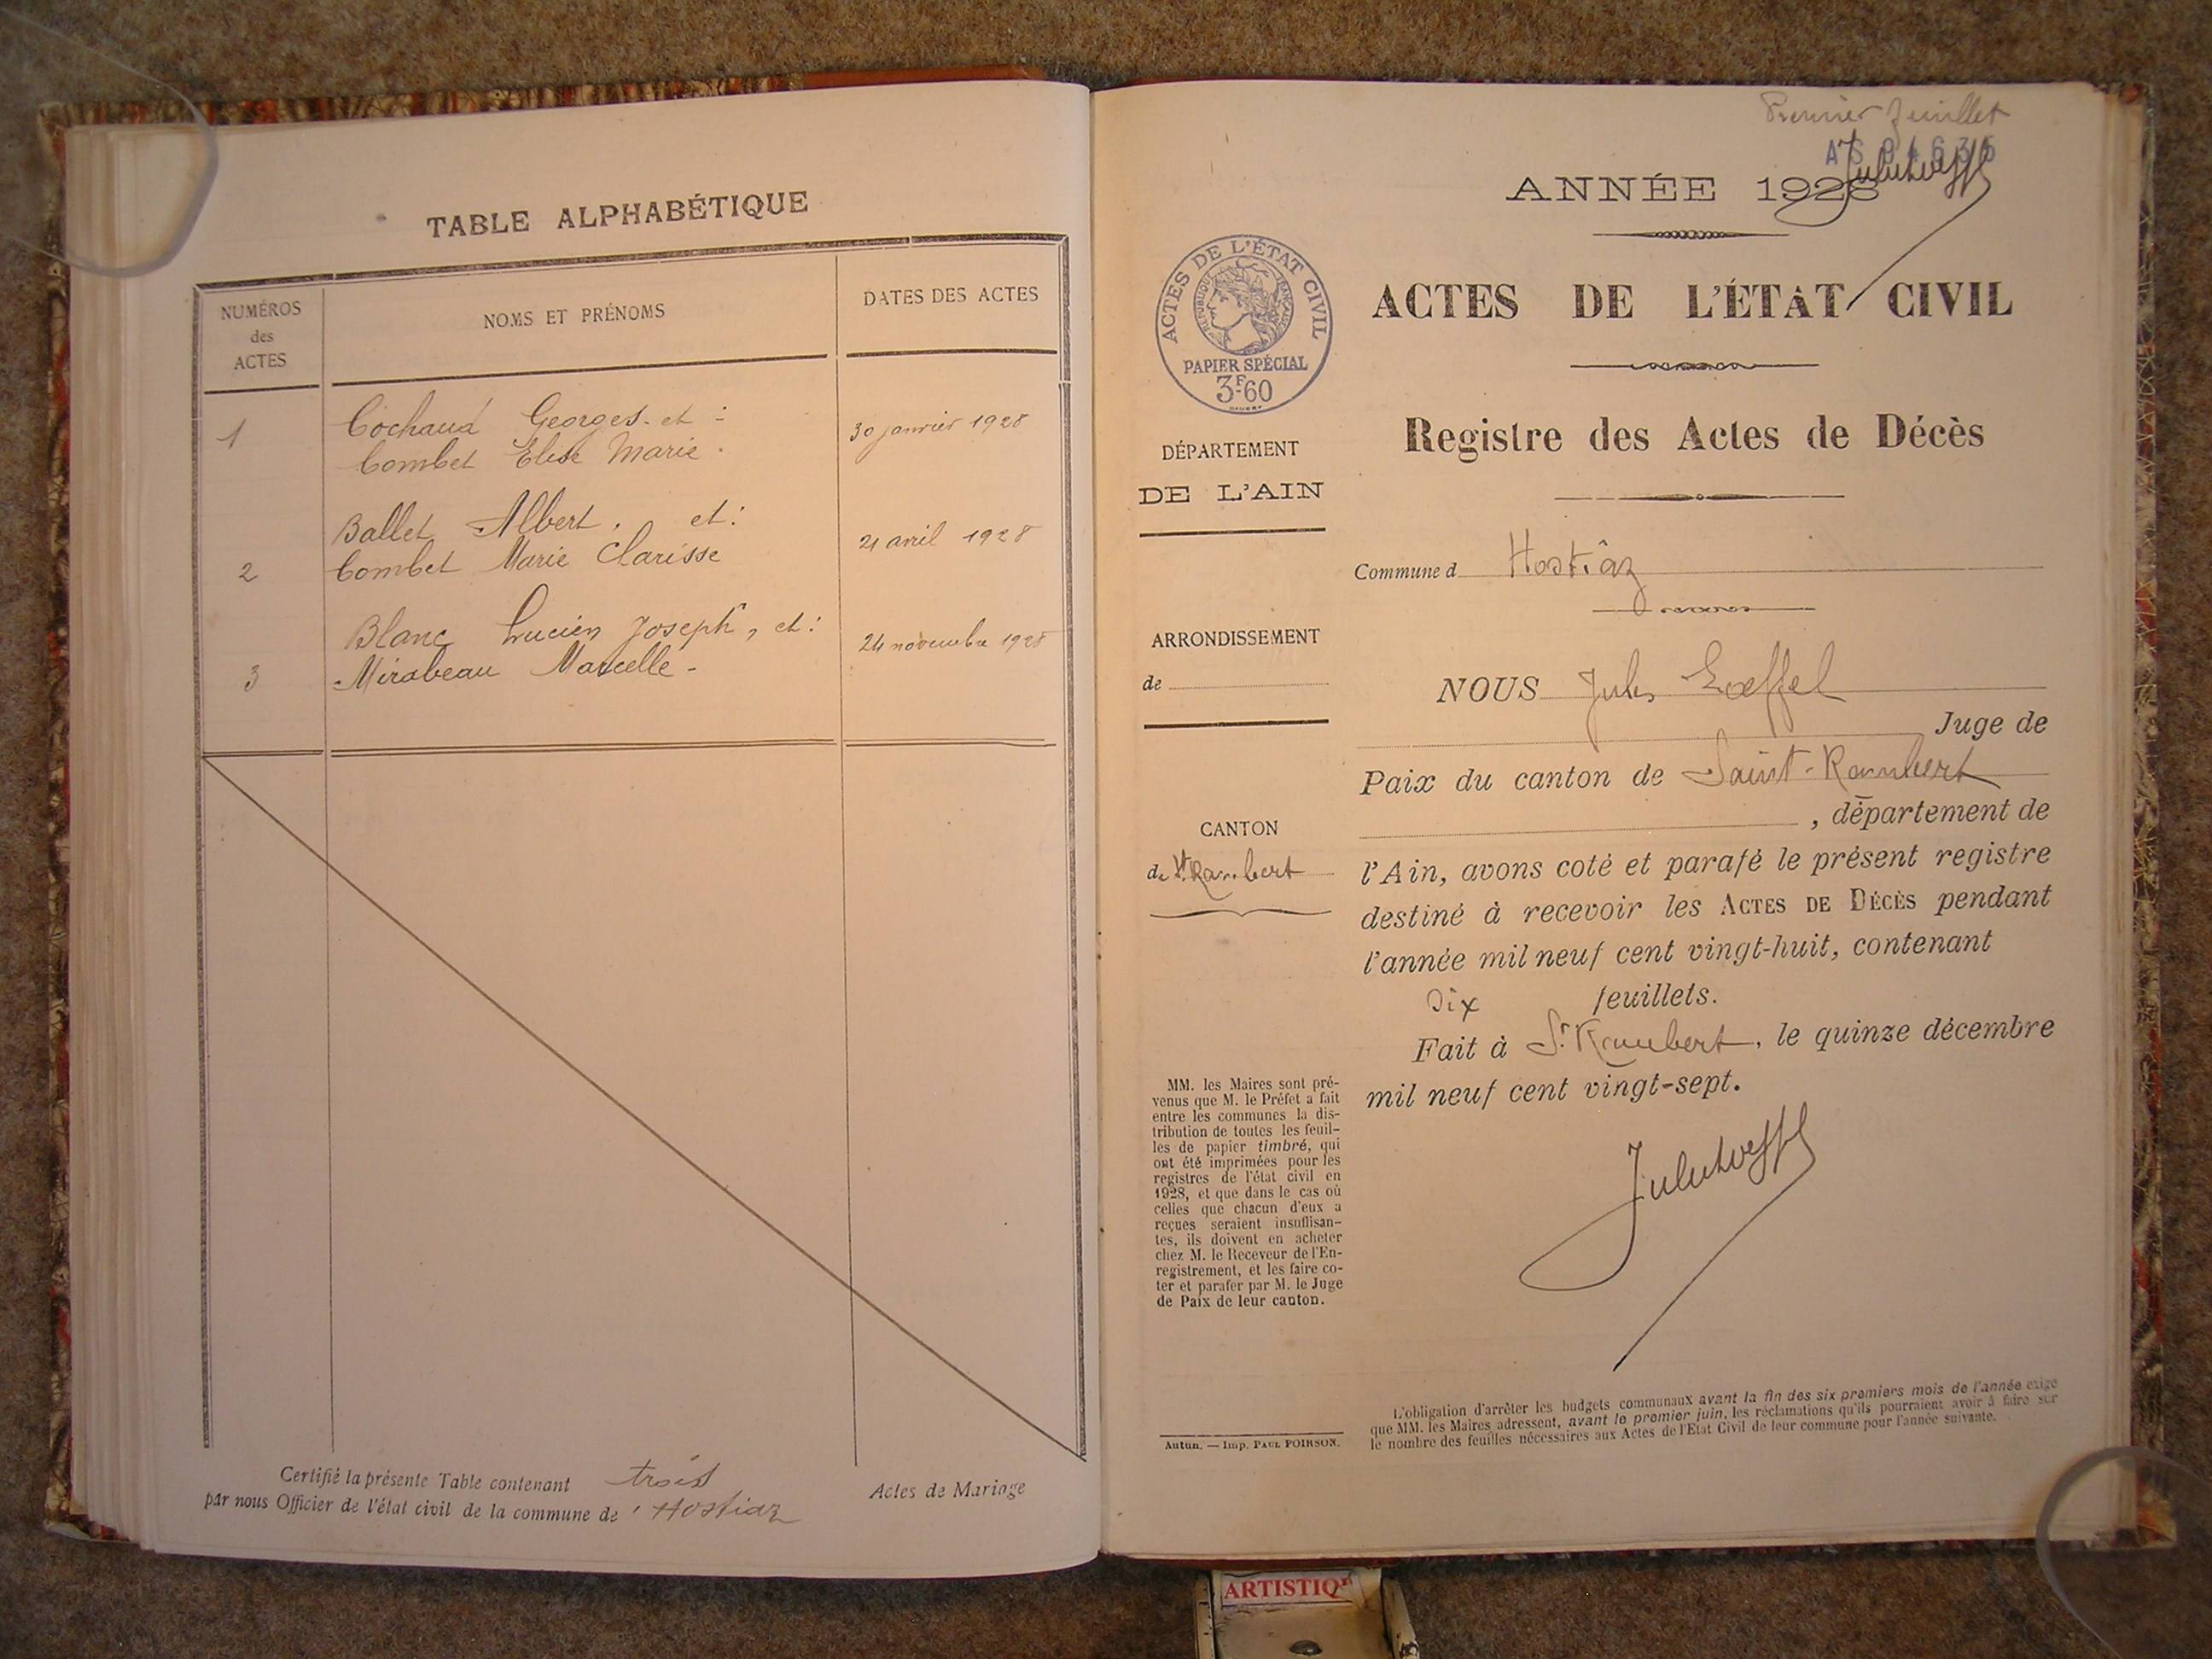 TABLE ALPHABÉTIQUE
NUMÉROS
des
ACTES
NOMS ET PRÉNOMS
DATES DES ACTES
1
Cochaud Georges et :
Combet Elise Marie.
30 janvier 1928
Ballet Albert, et :
2
Combet Marie Clarisse
21 avril 1928
Blanc Lucien Joseph, et :
3
Mirabeau Marcelle -
24 novembre 1928
Certifié la présente Table contenant trois Actes de Mariage
par nous Officier de l'état civil de la commune de Hostiaz
Premier feuillet
ANNÉE 1928
ACTES DE L'ÉTAT CIVIL
RÉPUBLIQUE FRANÇAISE
PAPIER SPÉCIAL
3F.60
ACTES DE L'ÉTAT CIVIL
Registre des Actes de Décès
DÉPARTEMENT
DE L'AIN
Commune d Hostiâz
ARRONDISSEMENT
de
NOUS Jules Loeffel
Juge de
Paix du canton de Saint-Rambert
, département de
CANTON
de St. Rambert
l'Ain, avons coté et parafé le présent registre
destiné à recevoir les ACTES DE DÉCÈS pendant
l'année mil neuf cent vingt-huit, contenant
Dix feuillets.
Fait à St. Rambert, le quinze décembre
mil neuf cent vingt-sept.
MM. les Maires sont pré-
venus que M. le Préfet a fait
entre les communes la dis-
tribution de toutes les feuil-
les de papier timbré, qui
ont été imprimées pour les
registres de l'état civil en
1928, et que dans le cas où
celles que chacun d'eux a
reçues seraient insuffisan-
tes, ils doivent en acheter
chez M. le Receveur de l'En-
registrement, et les faire co-
ter et parafer par M. le Juge
de Paix de leur canton.
Autun. — Imp. PAUL POIRSON.
L'obligation d'arrêter les budgets communaux avant la fin des six premiers mois de l'année exige
que MM. les Maires adressent, avant le premier juin, les réclamations qu'ils pourraient avoir à faire sur
le nombre des feuilles nécessaires aux Actes de l'Etat Civil de leur commune pour l'année suivante.
ARTISTIQ